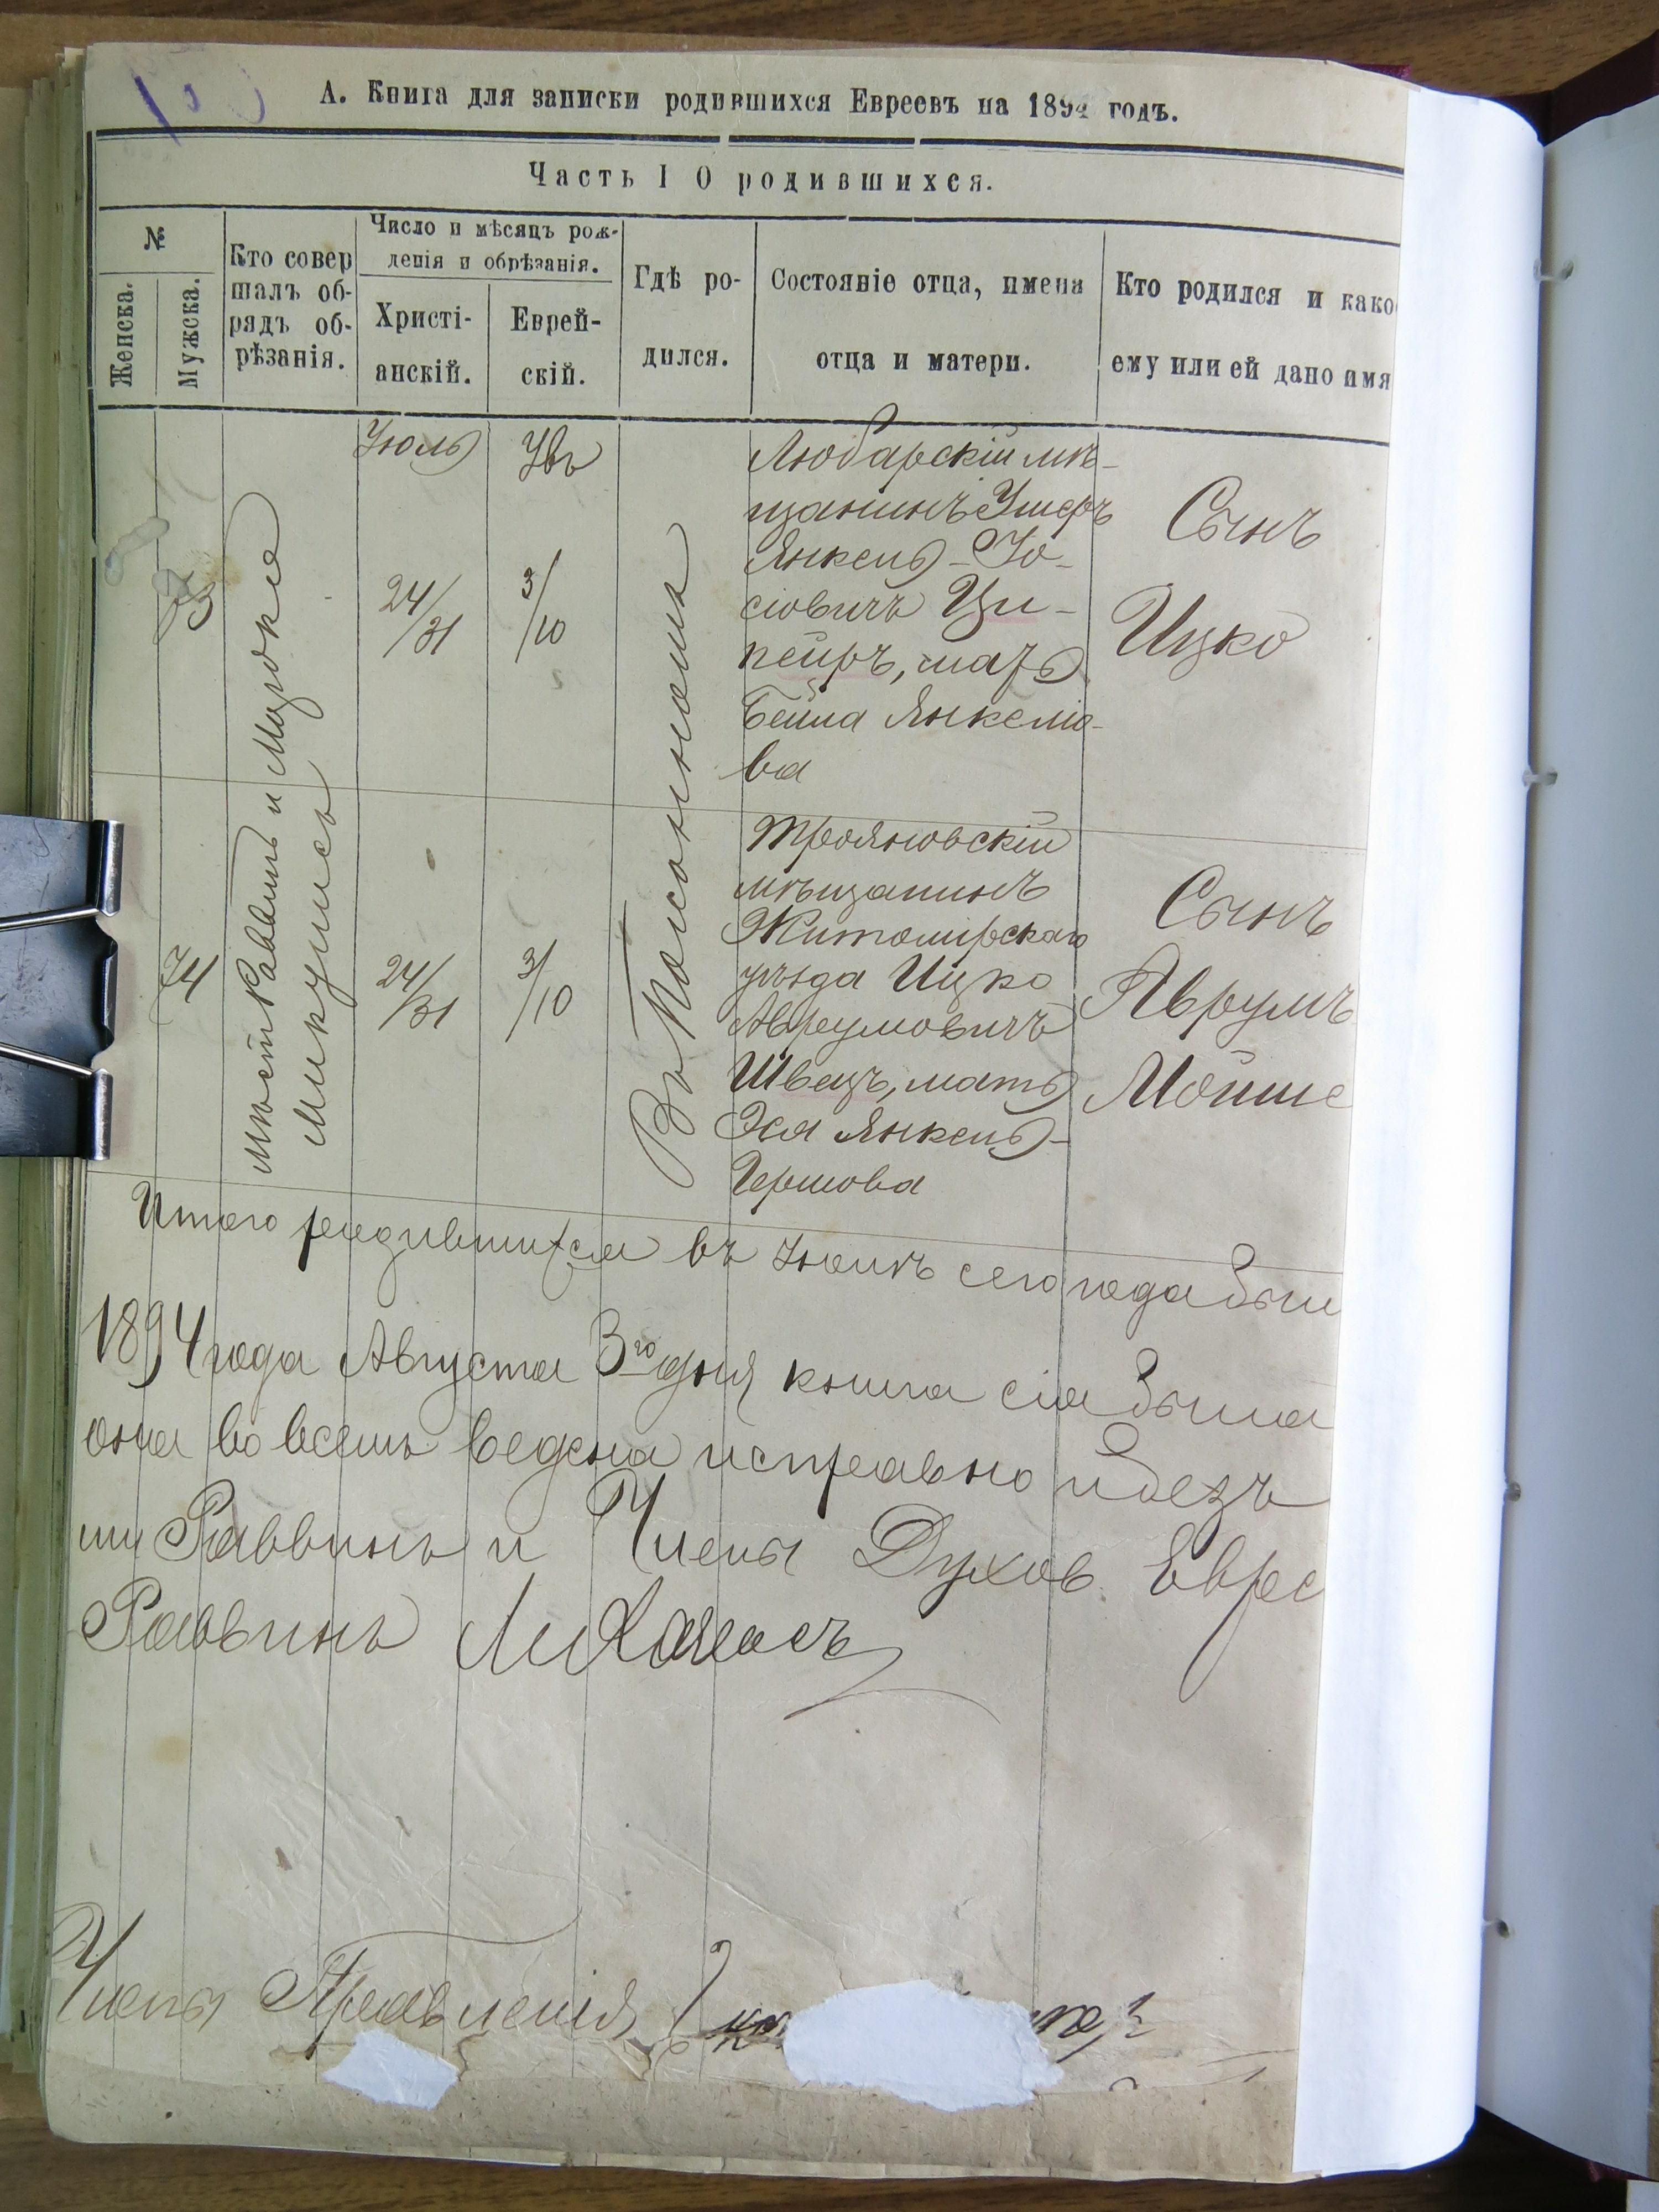 А. Книга для записки родившихся Евреевъ на 1894 годъ.
Часть I О родившихся.
№
Женска.
Мужска.
Кто совер
шалъ об-
рядъ об-
рѣзанія.
Число и мѣсяцъ рож-
денія и обрѣзанія.
Христі-
анскій.
Еврей-
скій.
Гдѣ ро-
дился.
Состояніе отца, имена
отца и матери.
Кто родился и како
ему или ей дано имя
73
Раввинъ и
Іюль
24/31
3/10
Любарскій мѣ-
щанинъ Ушеръ
Янкель-Іо-
сіовичъ Ци-
пейръ, мать
Бейла Янкеліо-
ва
Сынъ
Ицко
74
24/31
3/10
Трояновскій
мѣщанинъ
Житомирскаго
уѣзда Ицко
Аврумовичъ
Швецъ, мать
Эся Янкель-
Гершова
Сынъ
Аврумъ
Мойше
Итого родившихся въ Іюлѣ сего года были
1894 года Августа 3го дня книга сія была
она во всемъ ведена исправно и безъ
ли Раввинъ и Члены Духов. Евре
Раввинъ
Члены Правленія